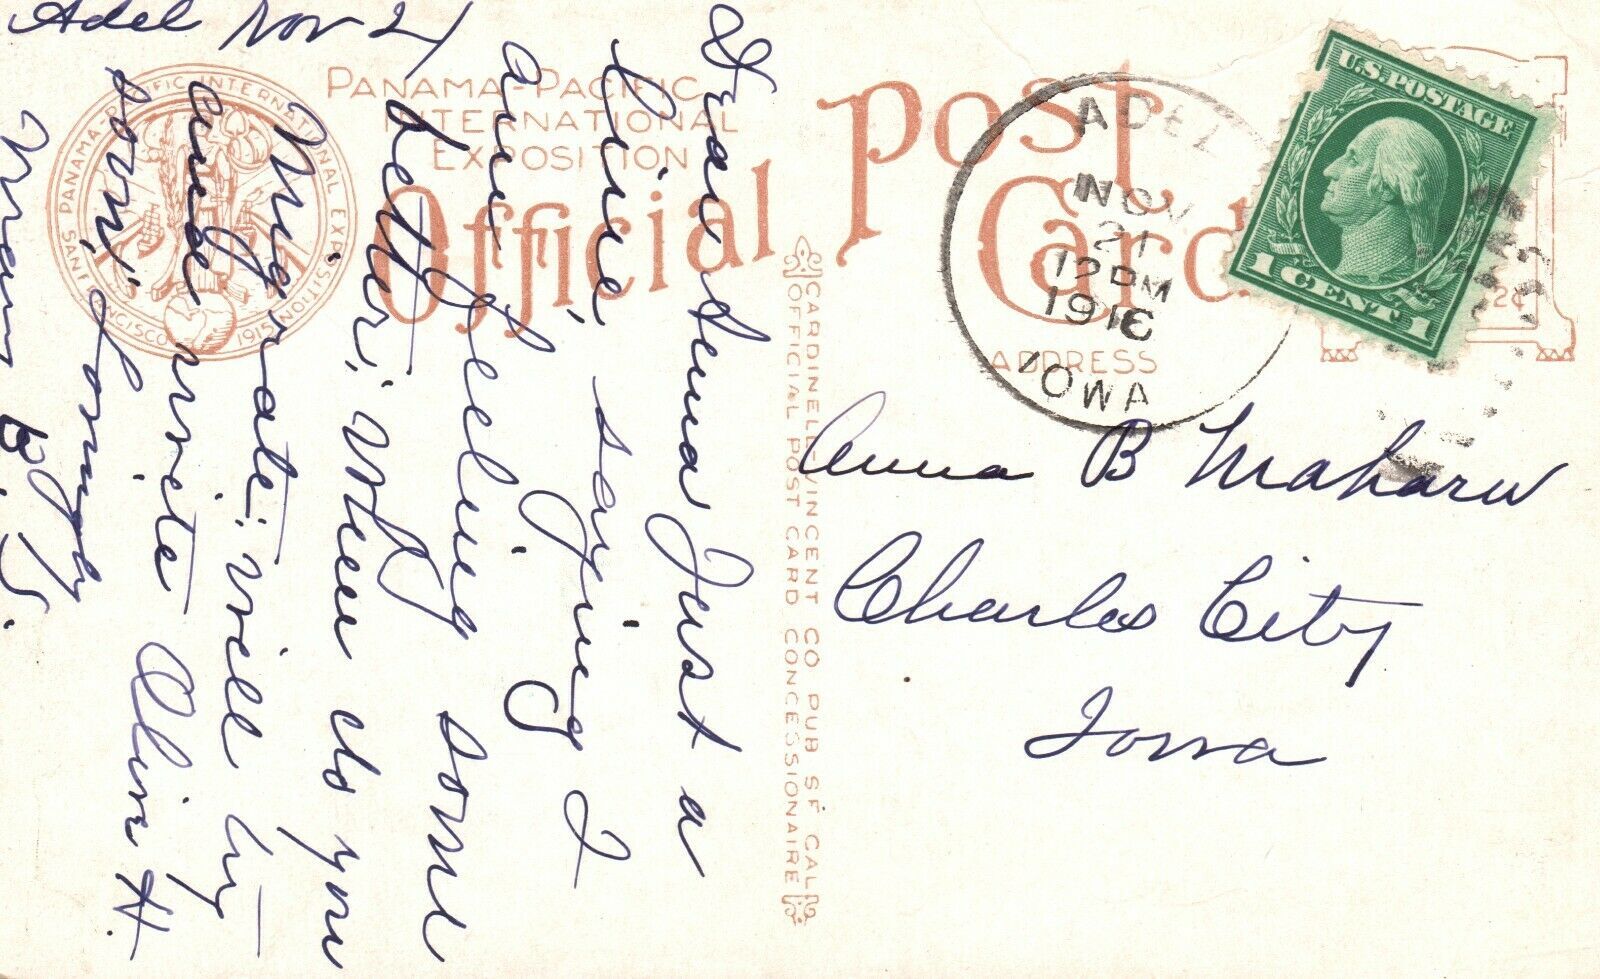 Adel Nov 21
Dear Anna Just a
line saying I
am feeling some
better; When do you
Migrate; Will try
and write Olin H.
soon; Lovingly
Mary B. J.
PANAMA-PACIFIC
INTERNATIONAL
EXPOSITION
Official Post Card
PANAMA-PACIFIC INTERNATIONAL EXPOSITION
SAN FRANCISCO 1915
CARDINELL-VINCENT CO. PUB. S.F. CAL.
OFFICIAL POST CARD CONCESSIONAIRE
ADDRESS
ADEL
NOV
21
12 PM
1916
IOWA
U.S. POSTAGE
1 CENT 1
2¢
Anna B Maharw
Charles City
Iowa